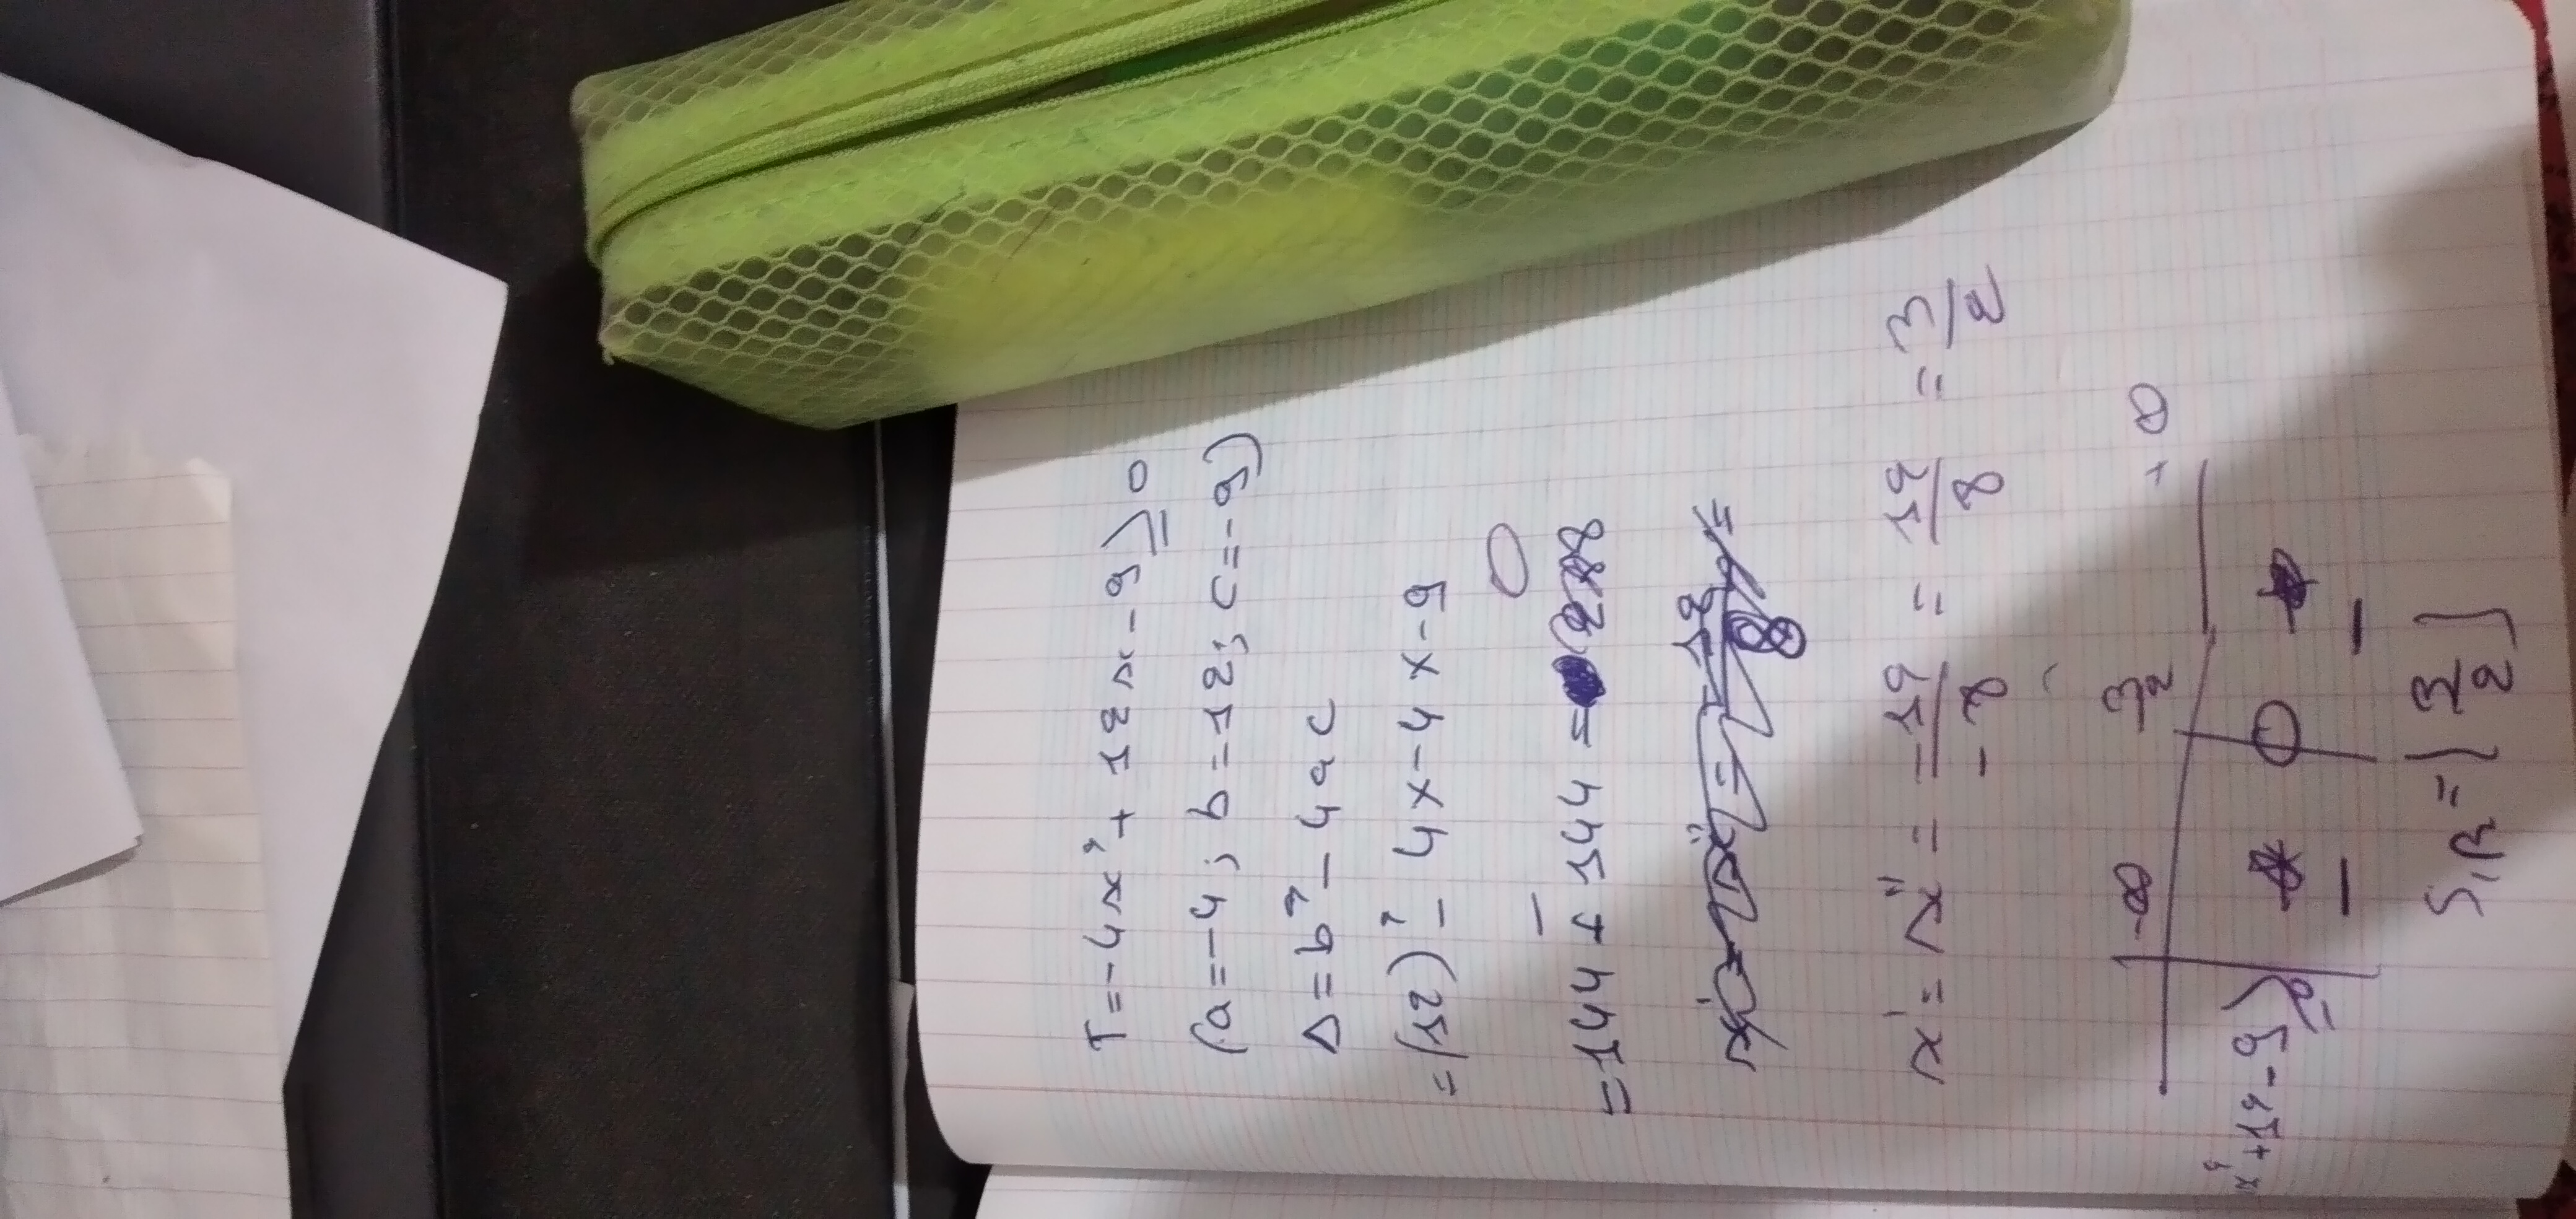 T = -4x² + 12x - 9 ≥ 0
(a = -4 ; b = 12 ; c = -9)
Δ = b² - 4ac
= (12)² - 4 x - 4 x - 9
= 144 - 144 = 0
x' = x'' = -12/-8 = 12/8 = 3/2
-∞ 3/2 +∞
x² + 12 - 9 ≥ 0 - 0 -
S,IR = { 3/2 }